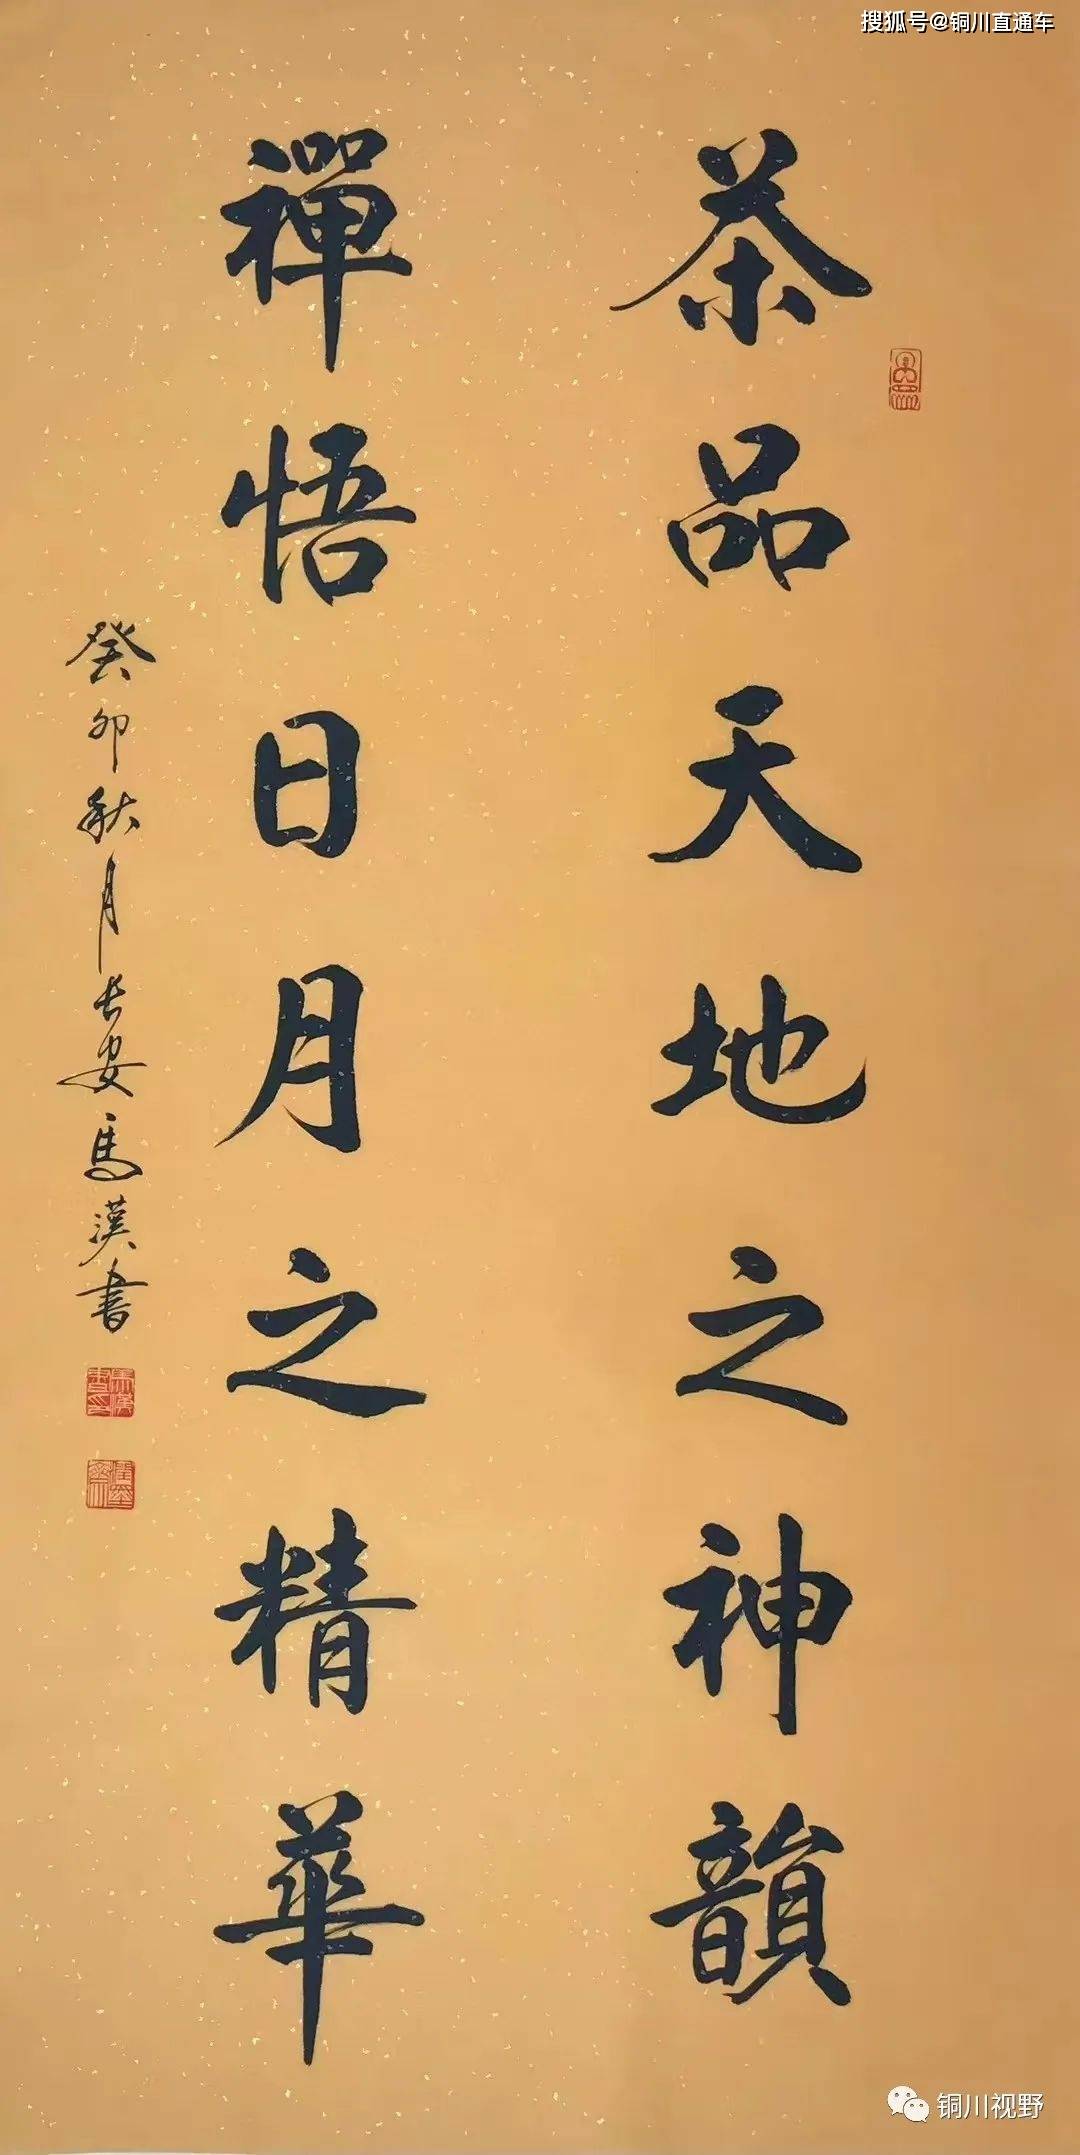 搜狐号@铜川直通车
茶品天地之神韻
禪悟日月之精華
癸卯秋月長安馬漢書
馬漢書印
铜川视野